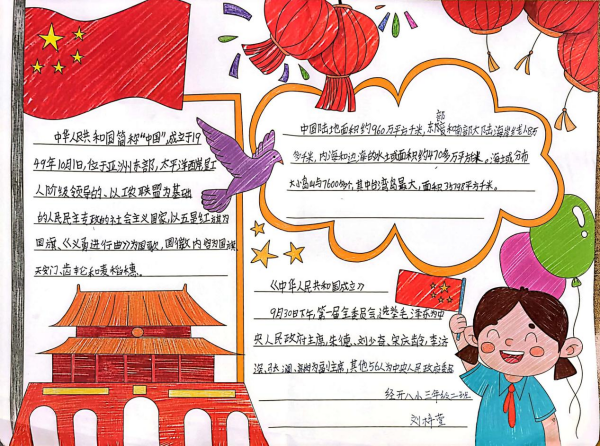 中华人民共和国简称“中国”,成立于19
49年10月1日,位于亚洲东部,太平洋西岸是工
人阶级领导的、以工农联盟为基础
的人民民主专政的社会主义国家,以五星红旗为
国旗,《义勇进行曲》为国歌,国徽内容为国旗
天安门、齿轮和麦稻穗。
中国陆地面积约960万平方千米,东部和南部大陆海岸线1.8万
多千米,内海和边海的水域面积约470多万平方千米。海域分布
大小岛屿7600多个,其中台湾岛最大,面积35798平方千米。
《中华人民共和国成立》
9月30日下午,第一届全委员会选举毛泽东为中
央人民政府主席,朱德、刘少奇、宋庆龄、李济
深、张澜、高岗为副主席,其他56人为中央人民政府委员
经开八小三年级二班